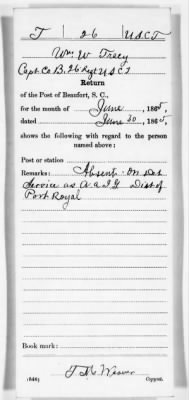 T | 26 | U.S.C.T.
Wm W Tracy
Capt, Co B, 26 Regt U S C T
Return
of the Post of Beaufort, S. C.,
for the month of June, 1865,
dated June 30, 1865,
shows the following with regard to the person
named above:
Post or station
Remarks: Absent. On Det
Service as A. A. I. G. Dist of
Port Royal
Book mark:
J. M. Weaver
(646) Copyist.